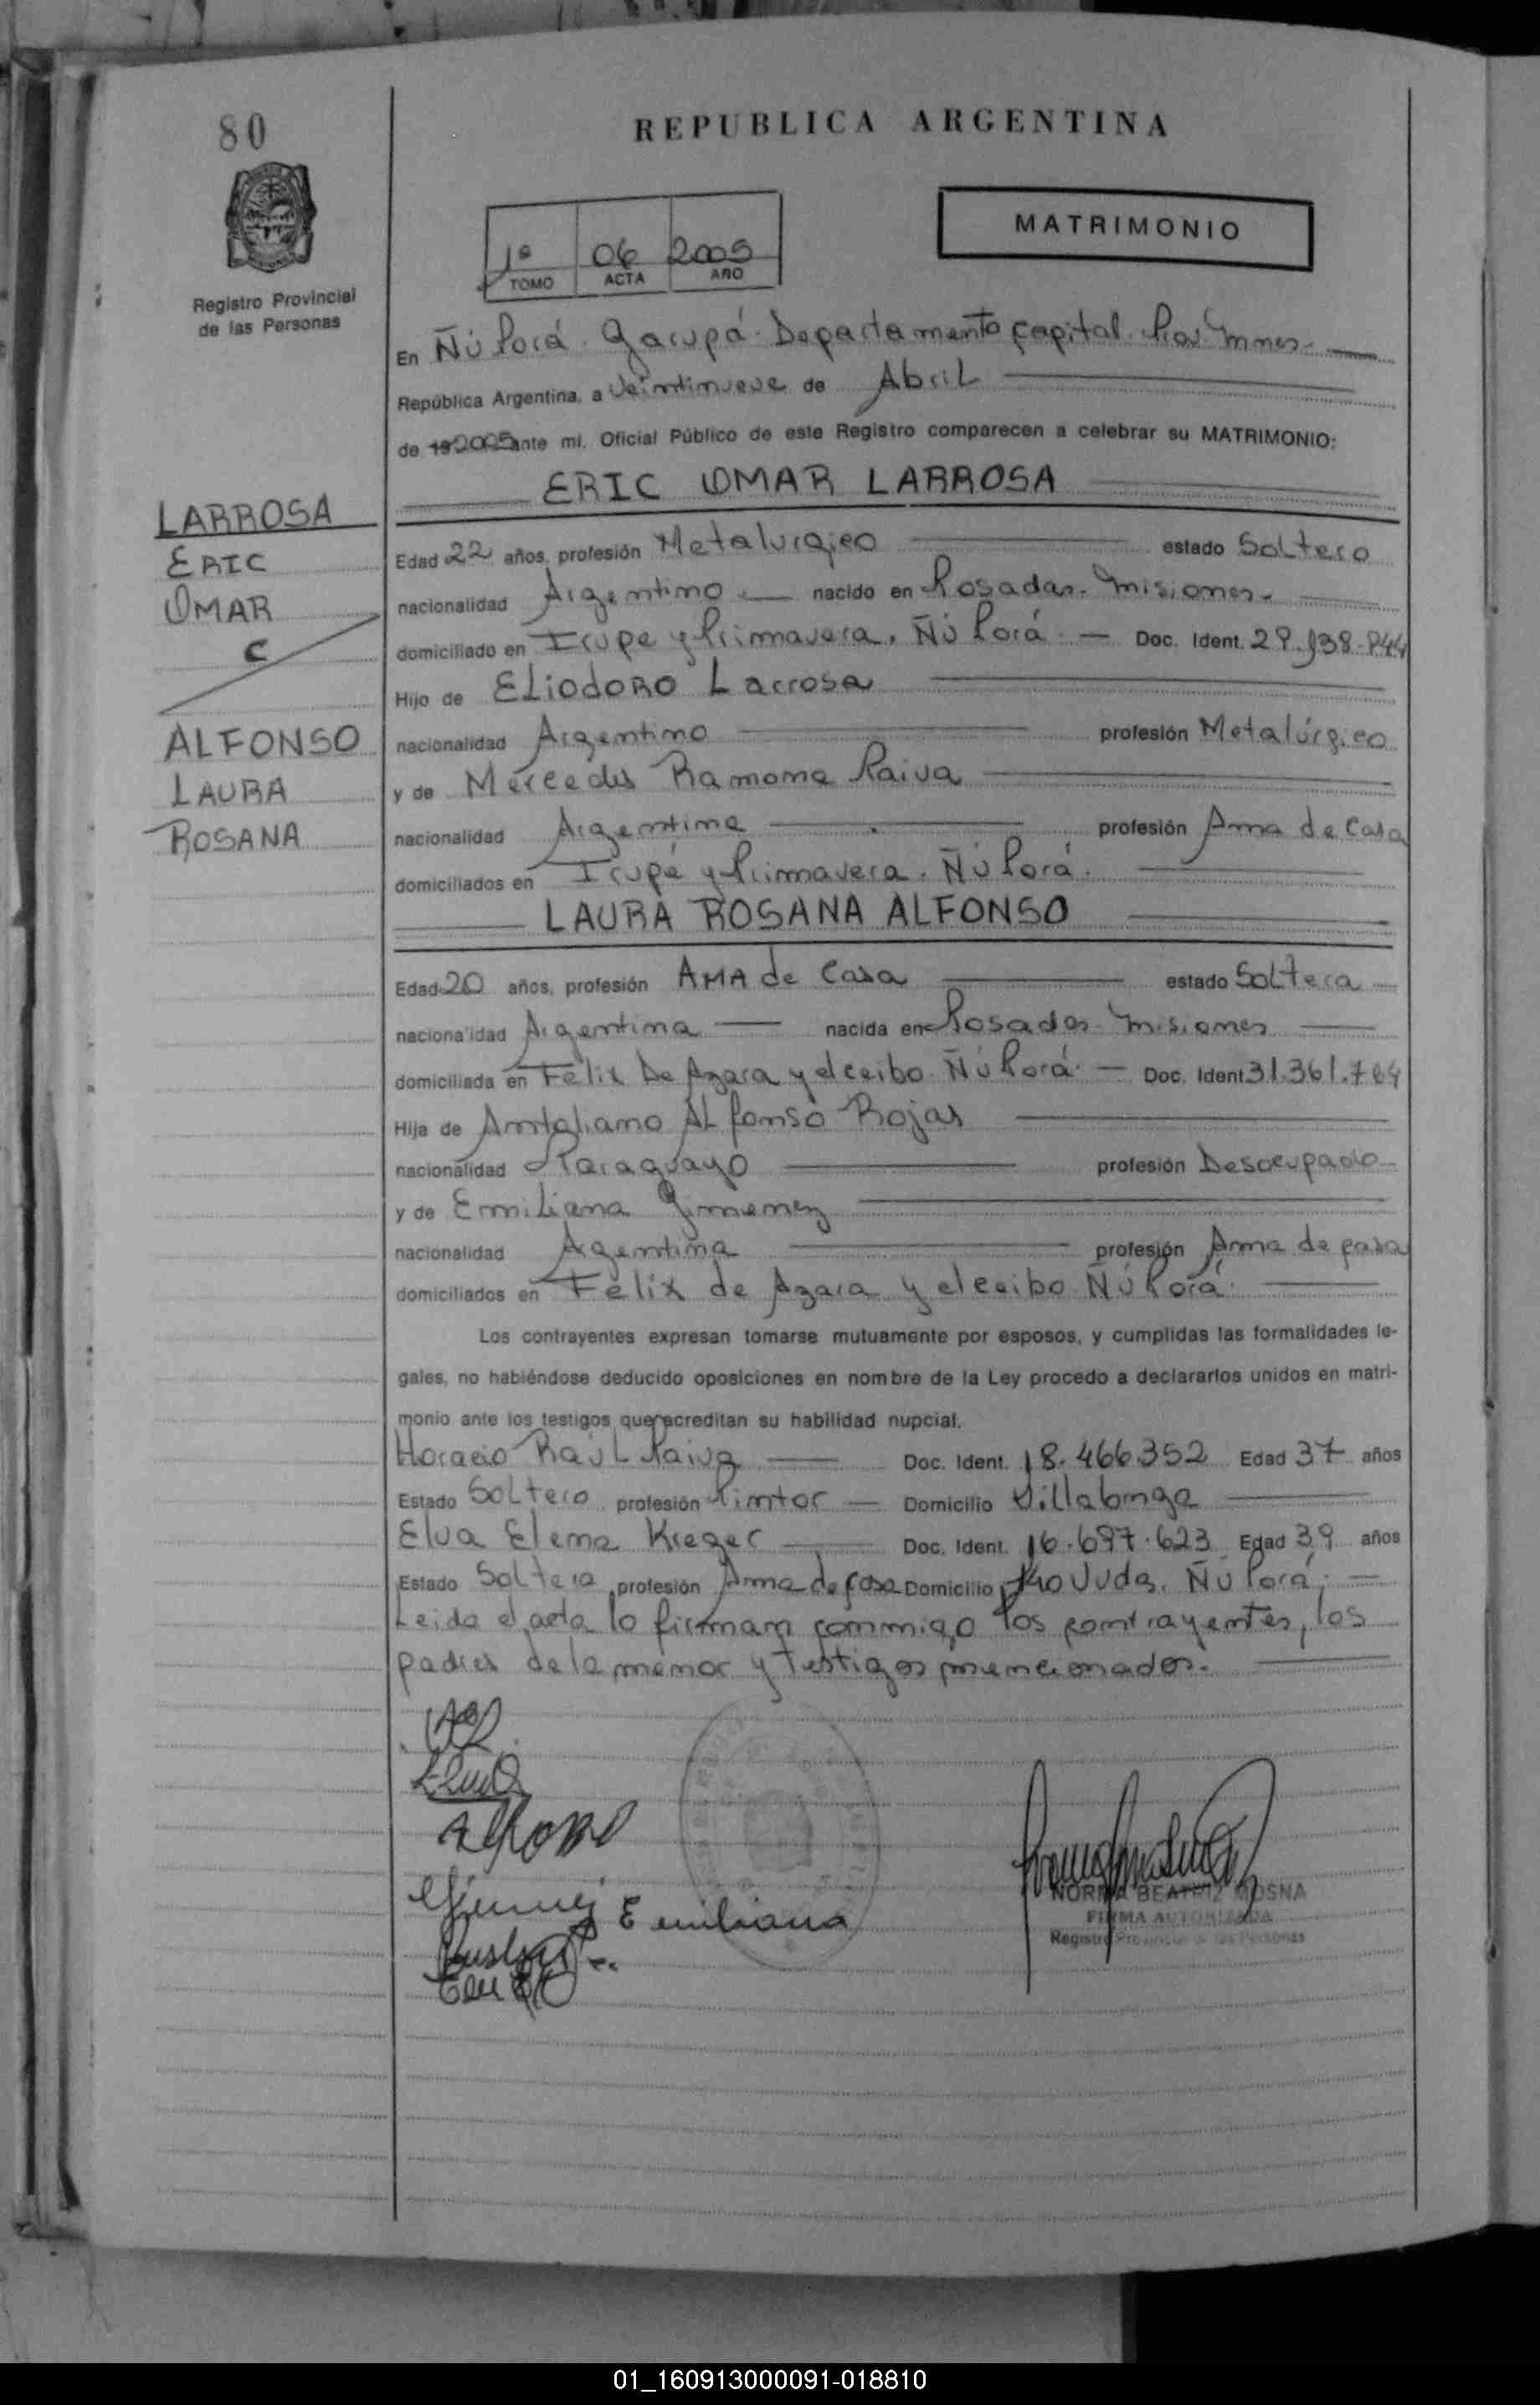 80
REPUBLICA ARGENTINA
Registro Provincial
de las Personas
1º 06 2005
TOMO ACTA AÑO
MATRIMONIO
En Ñú Porá. Garupá. Departamento Capital. Mnes.
República Argentina, a Veintinueve de Abril
de 19 2005 ante mí, Oficial Público de este Registro comparecen a celebrar su MATRIMONIO:
ERIC OMAR LARROSA
LARROSA
ERIC
OMAR
C
ALFONSO
LAURA
ROSANA
Edad 22 años, profesión Metalurgico estado Soltero
nacionalidad Argentino nacido en Posadas. Misiones.
domiciliado en Irupe y Primavera. Ñú Porá. Doc. Ident.
Hijo de ELiodoRo Larrosa
nacionalidad Argentino profesión Metalúrgico
y de Mercedes Ramona Paiva
nacionalidad Argentina profesión Ama de Casa
domiciliados en Irupé y Primavera. Ñú Porá.
LAURA ROSANA ALFONSO
Edad 20 años, profesión AMA de Casa estado Soltera
nacionalidad Argentina nacida en Posadas Misiones
domiciliada en Felix De Azara y el ceibo. Ñú Porá. Doc. Ident 31.361.764
Hija de Alfonso Rojas
nacionalidad Paraguayo profesión Desocupado
y de Emiliana Gimenez
nacionalidad Argentina profesión Ama de casa
domiciliados en Felix de Azara y el ceibo Ñú Porá.
Los contrayentes expresan tomarse mutuamente por esposos, y cumplidas las formalidades le-
gales, no habiéndose deducido oposiciones en nombre de la Ley procedo a declararlos unidos en matri-
monio ante los testigos que acreditan su habilidad nupcial.
Horacio Raúl Paiva Doc. Ident. 18.466.352 Edad 37 años
Estado Soltero profesión Pintor Domicilio Villalonga
Elva Elena Kieger Doc. Ident. 16.697.623 Edad 39 años
Estado Soltera profesión Ama de casa Domicilio Ñú Porá.
Leida el acta lo firman conmigo los contrayentes, los
padres de la menor y testigos mencionados.
Emiliana
NORMA BEATRIZ MOSNA
FIRMA AUTORIZADA
Registro Provincial de las Personas
01_160913000091-018810